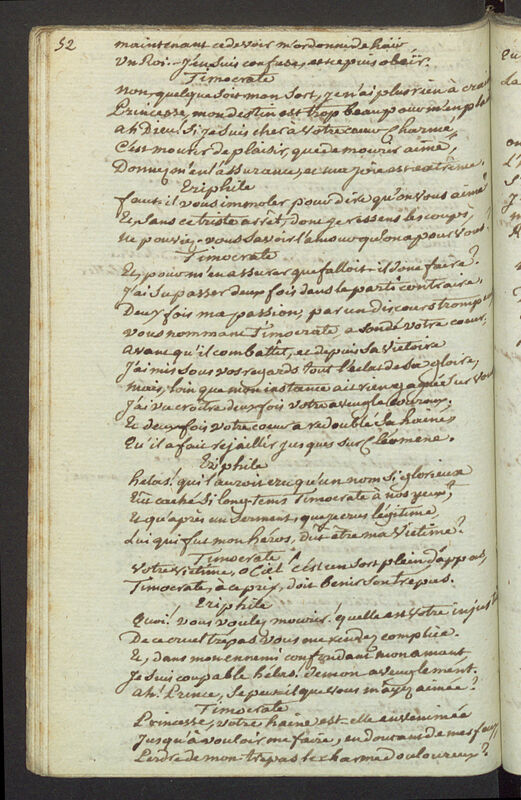 52
maintenant ce devoir m'ordonne de haïr
Un Roi. - J'en suis confuse, et ne puis obéir.
Timocrate
non, quelque soit mon sort, je n'ai plus rien à crain
Princesse, mon destin est trop beau pour m'en pla
ah Dieu! Si je suis cher à votre coeur charmé,
C'est mourir de plaisir, que de mourir aimé,
Donnez m'en l'assurance, et ma joie est extrême.
Eriphile
faut-il vous immoler pour dire qu'on vous aime
Et, Sans ce triste arrêt, dont je ressens les coups,
Ne pouvez-vous savoir l'amour qu'on a pour vous?
Timocrate
Et, pour m'en assurer que falloit-il donc faire?
J'ai su passer deux fois dans le parti contraire,
Deux fois ma passion, par un discours trompeu
Vous nommant Timocrate a sondé votre coeur,
avant qu'il combattît, et depuis sa victoire
J'ai mis sous vos regards tout l'éclat de sa gloire,
Mais, loin que mon instance ait rien gagné sur vous
J'ai vu croître deux fois votre aveugle couroux.
Et deux fois votre coeur a redoublé la haine
Qu'il a fait rejaillir jusques sur Cléomene.
Eriphile
helas! qui l'auroit cru qu'un nom si glorieux
Eut caché si long-tems Timocrate à nos yeux,
Et qu'après un Serment, que je crus légitime,
Lui qui fut mon héros, dut être ma victime?
Timocrate
Votre victime, o Ciel! c'est un sort plein d'appas,
Timocrate, à ce prix, doit benir son trepas.
Eriphile
Quoi! vous voulez mourir! quelle est votre injust
De ce cruel trépas vous me rendez complice.
Et, dans mon ennemi confondant mon amant
Je suis coupable hélas! de mon aveuglement.
ah! Prince, Se peut-il que vous m'ayez aimée?
Timocrate
Princesse, votre haine est-elle envenimée
Jusqu'à vouloir me faire, en doutant de mes feux
Perdre de mon trepas le charme douloureux?